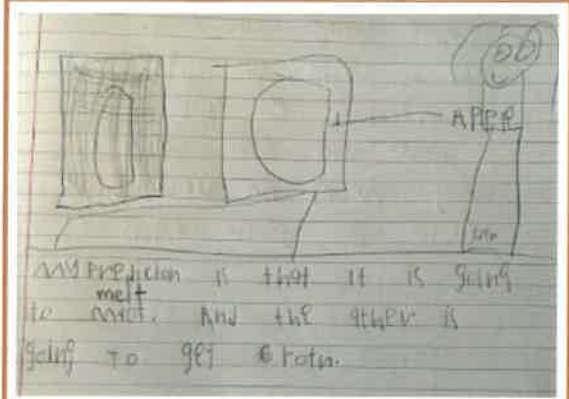 APPE
My predicion is that it is going
melt
to mict. And the other is
going to get rotn.